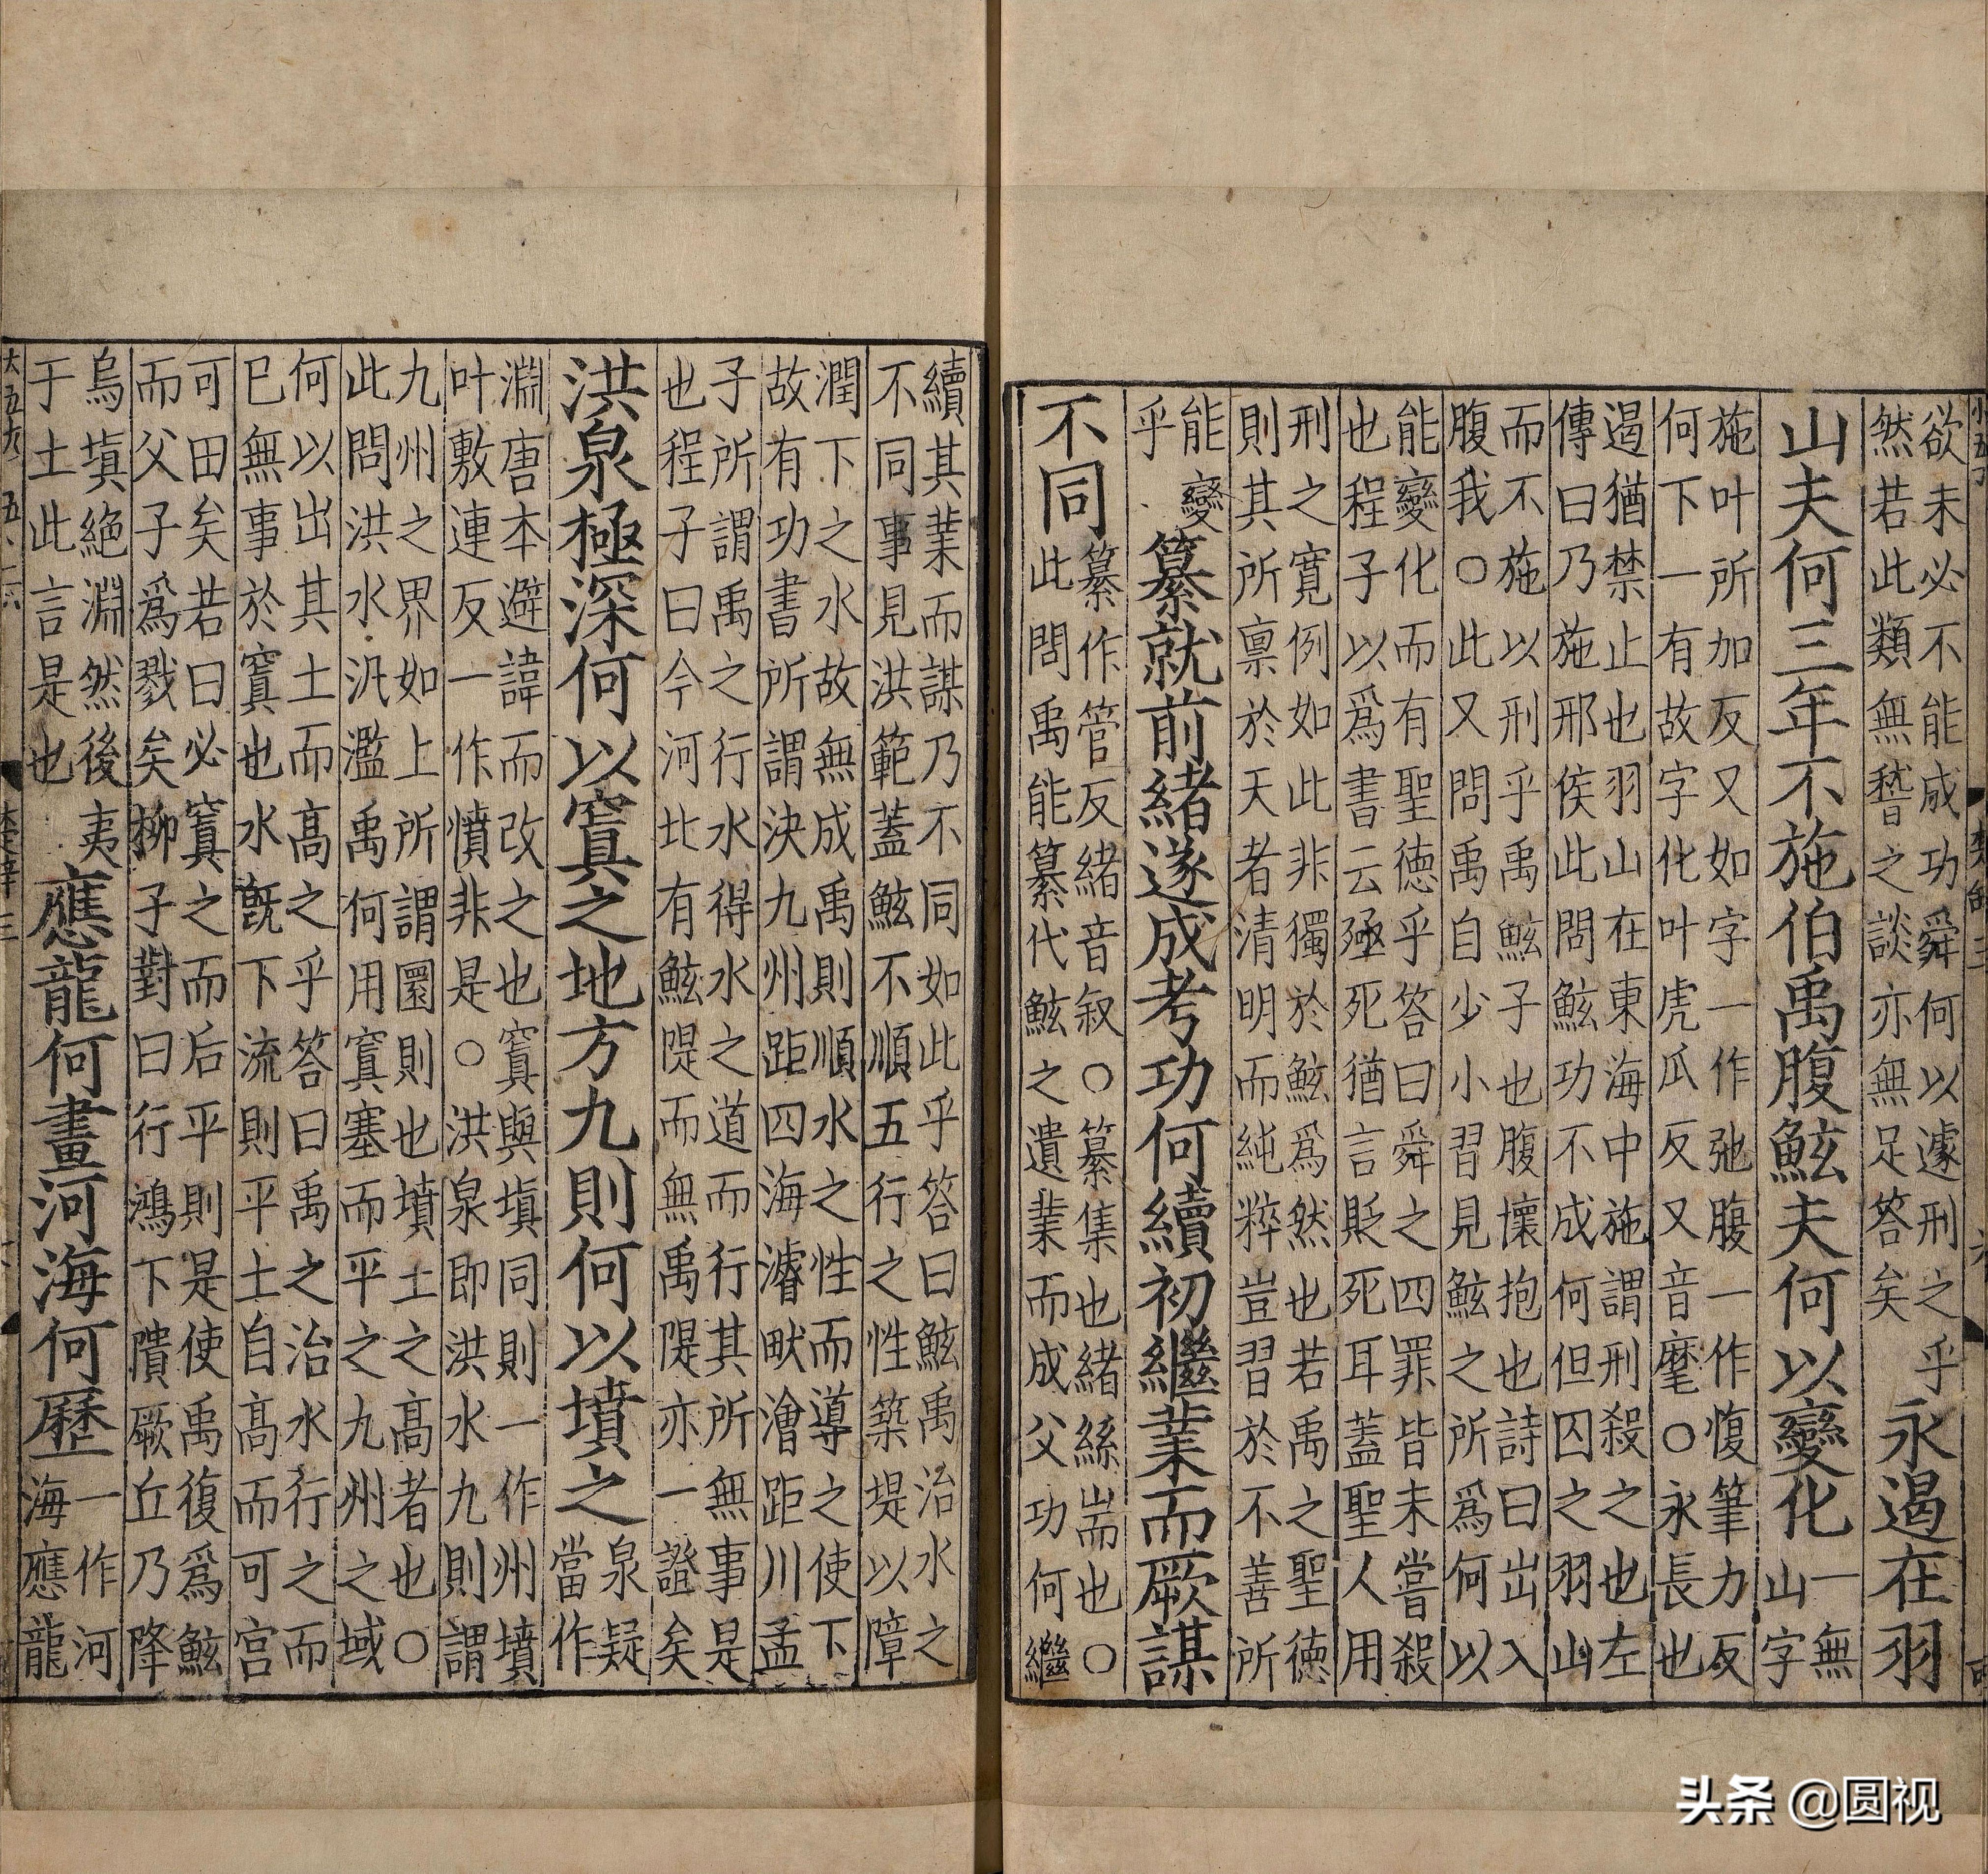 欲未必不能成功舜何以遽刑之乎
然若此類無嵇之談亦無足答矣
永遏在羽
山夫何三年不施伯禹腹鮌夫何以變化
一無
山字
施叶所加反又如字一作弛腹一作愎筆力反
何下一有故字化叶虎瓜反又音麾○永長也
遏猶禁止也羽山在東海中施謂刑殺之也左
傳曰乃施邢侯此問鮌功不成何但囚之羽山
而不施以刑乎禹鮌子也腹懷抱也詩曰出入
腹我○此又問禹自少小習見鮌之所爲何以
能變化而有聖德乎答曰舜之四罪皆未嘗殺
也程子以爲書云殛死猶言貶死耳蓋聖人用
刑之寬例如此非獨於鮌爲然也若禹之聖德
則其所禀於天者清明而純粹豈習於不善所
能變
乎
纂就前緒遂成考功何續初繼業而厥謀
不同
纂作管反緒音叙○纂集也緒絲耑也○
此問禹能纂代鮌之遺業而成父功何繼
續其業而謀乃不同如此乎答曰鮌禹治水之
不同事見洪範蓋鮌不順五行之性築堤以障
潤下之水故無成禹則順水之性而導之使下
故有功書所謂決九州距四海濬畎澮距川孟
子所謂禹之行水得水之道而行其所無事是
也程子曰今河北有鮌隄而無禹隄亦一證矣
洪泉極深何以窴之地方九則何以墳之
泉疑
當作
淵唐本避諱而改之也窴與塡同則一作州墳
叶敷連反一作憤非是○洪泉即洪水九則謂
九州之界如上所謂圜則也墳土之高者也○
此問洪水汎濫禹何用窴塞而平之九州之域
何以出其土而高之乎答曰禹之治水行之而
已無事於窴也水旣下流則平土自高而可宫
可田矣若曰必窴之而后平則是使禹復爲鮌
而父子爲戮矣柳子對曰行鴻下隤厥丘乃降
烏塡絶淵然後夷
于土此言是也
應龍何畫河海何歷
一作河
海應龍
头条 @圆视